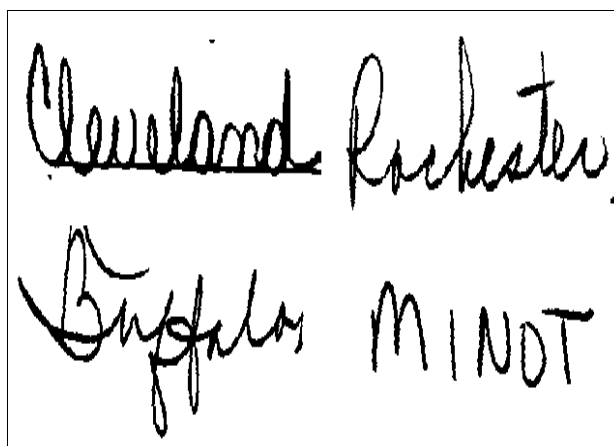 Cleveland Rochester
Buffalo MINOT